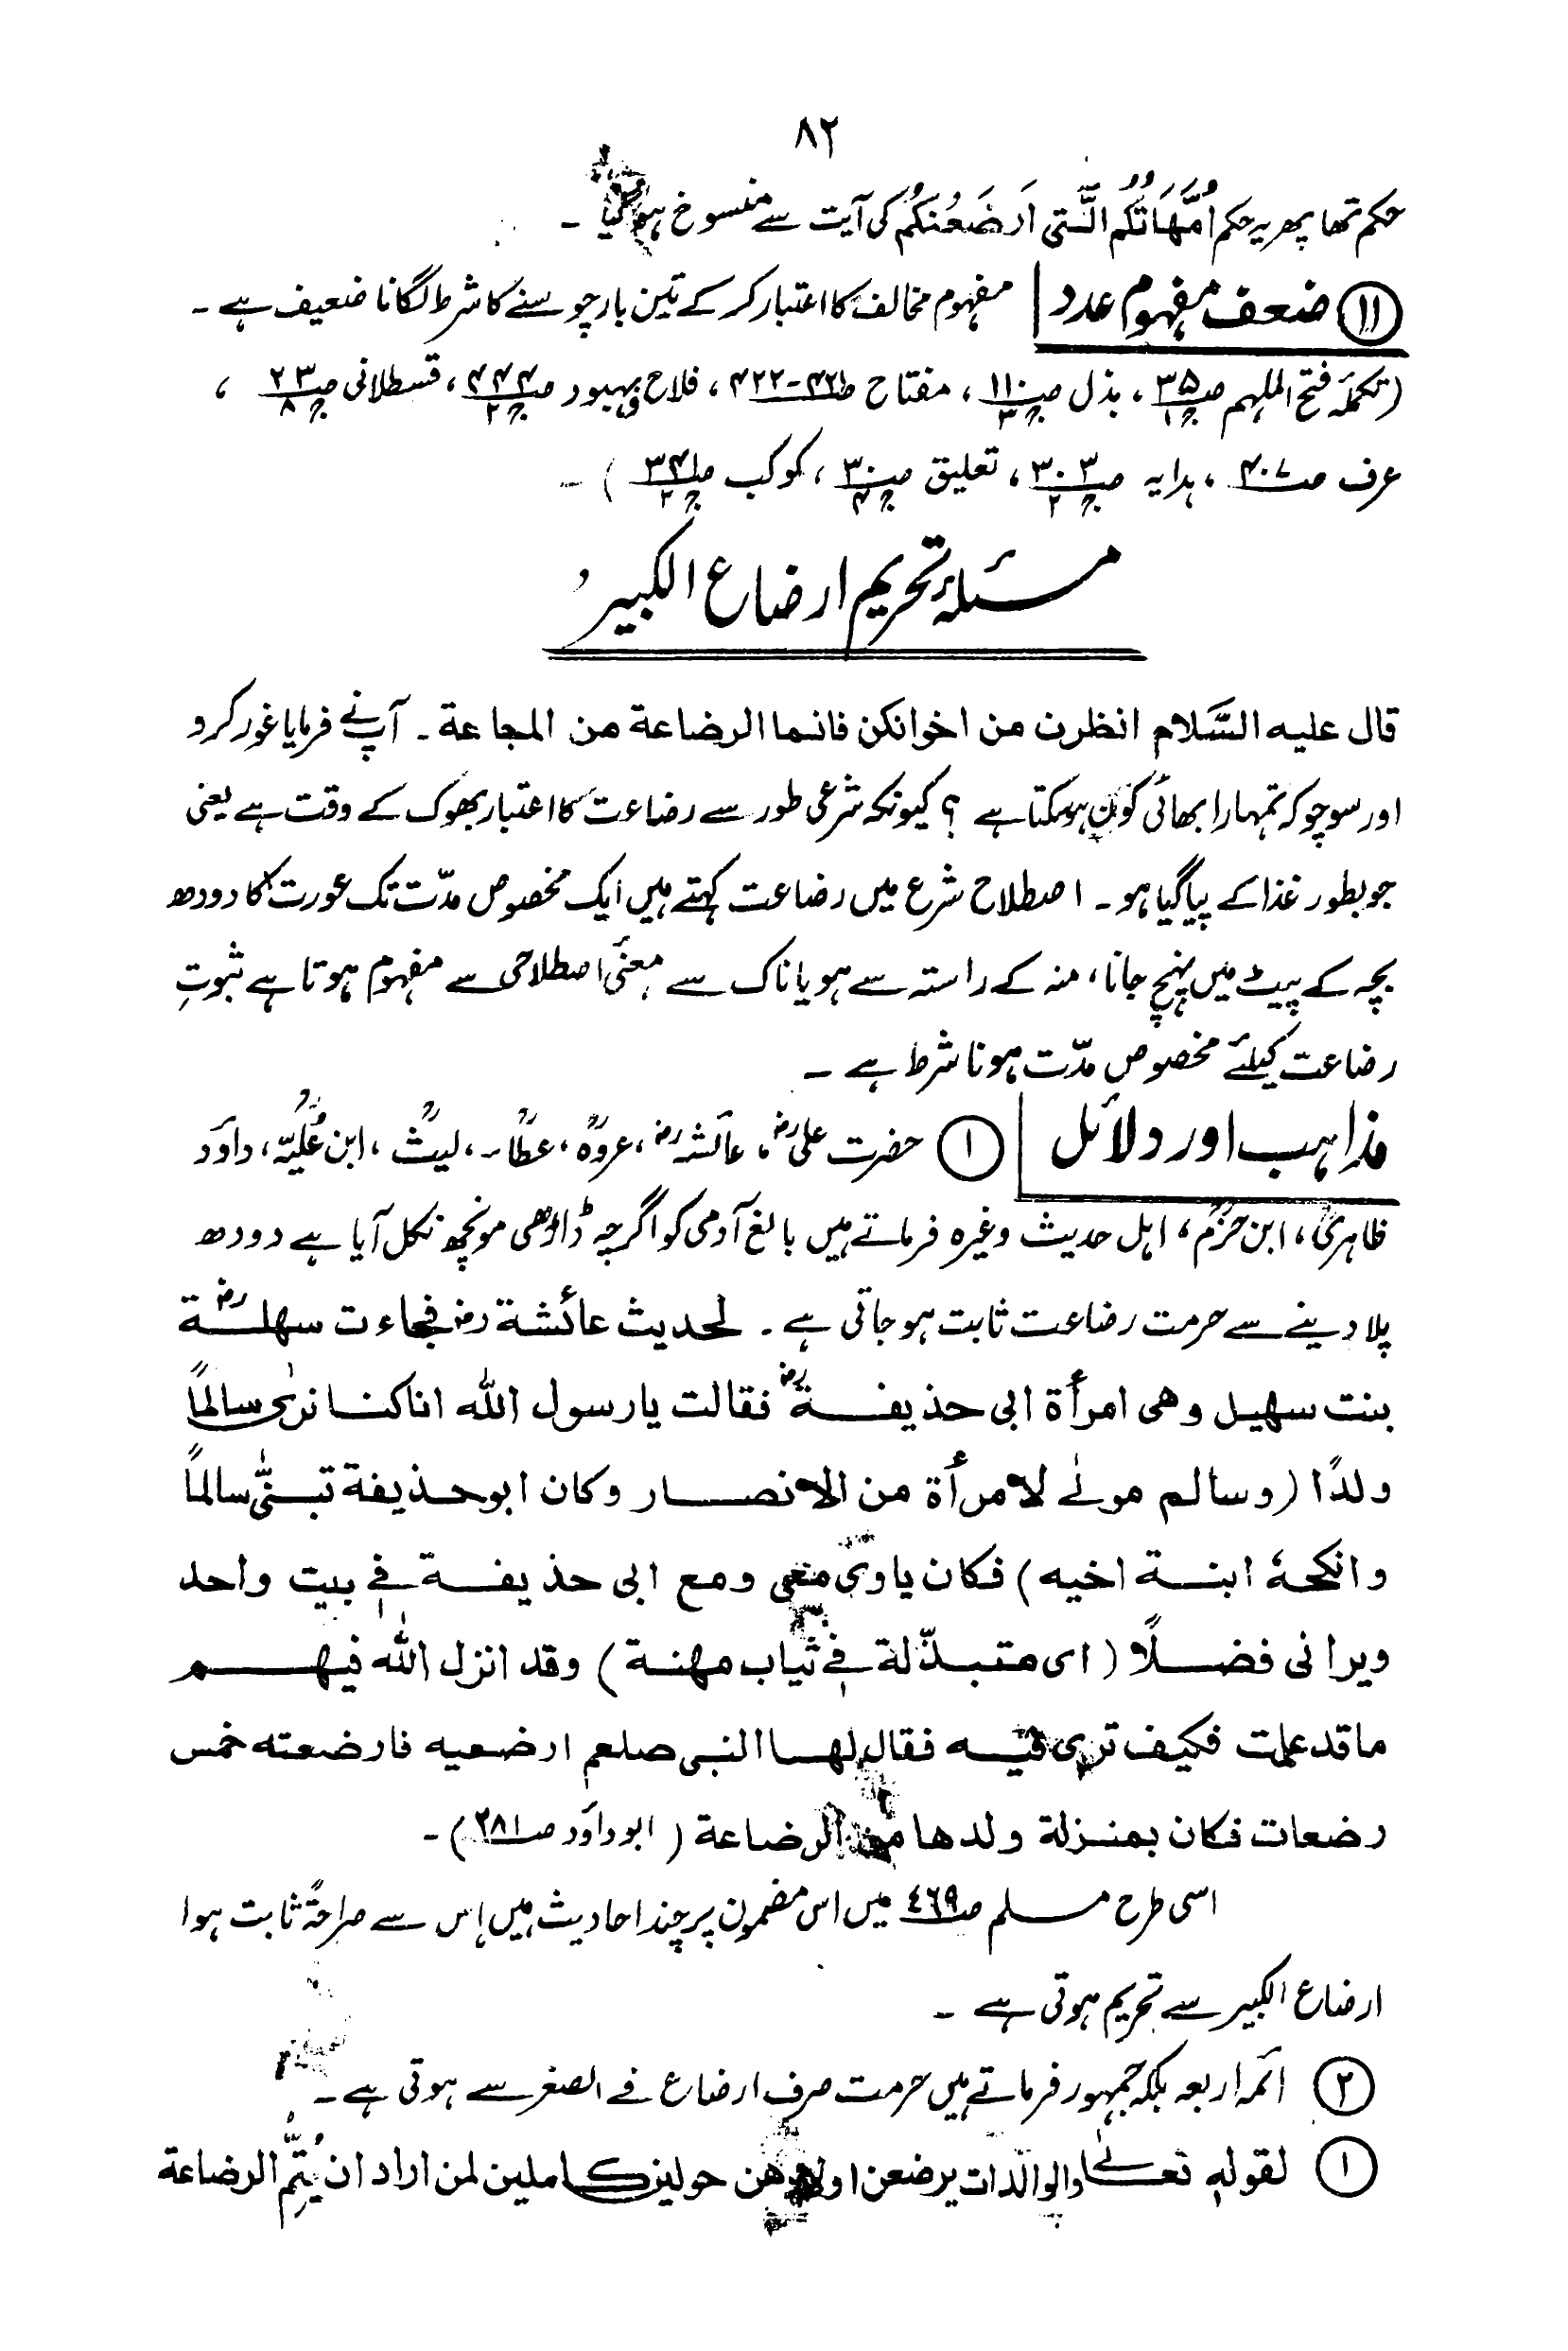 ۸۲
حکم تھا پھر یہ حکم اُمَّهَاتُكُمُ الّٰتِی اَرضَعْنَكُمْ کی آیت سے منسوخ ہو گیا ۔
⑪ ضعف مفہوم عدد | مفہوم مخالف کا اعتبار کر کے تین بار چوسنے کا شرط لگانا ضعیف ہے ۔
(تکملۂ فتح الملہم صـ۳۵ جـ۱ ، بذل صـ۱۱ جـ۳ ، مفتاح ، فلاح و بہبود جـ۲ ، قسطلانی صـ۲۳ جـ۸ ،
عرف صـ۴۰۷ ، ہدایہ صـ۳۰۳ جـ۲ ، تعلیق صـ۳۰ جـ۴ ، کوکب جـ۲ ) ۔
مسئلۂ تحریم ارضاع الکبیر
قال علیہ السَّلام انظرن من اخوانکن فانما الرضاعة من المجاعة ۔ آپ نے فرمایا غور کرو
اور سوچو کہ تمہارا بھائی کون ہو سکتا ہے ؟ کیونکہ شرعی طور سے رضاعت کا اعتبار بھوک کے وقت ہے یعنی
جو بطور غذا کے پیا گیا ہو ۔ اصطلاح شرع میں رضاعت کہتے ہیں ایک مخصوص مدّت تک عورت کا دودھ
بچہ کے پیٹ میں پہنچ جانا ، منہ کے راستہ سے ہو یا ناک سے معنیٔ اصطلاحی سے مفہوم ہوتا ہے ثبوتِ
رضاعت کیلئے مخصوص مدّت ہونا شرط ہے ۔
مذاہب اور دلائل | ① حضرت علیؓ ، عائشہؓ ، عروہؒ ، عطاءؒ ، لیثؒ ، ابن عُلَیّہؒ ، داؤد
ظاہریؒ ، ابن حزمؒ ، اہل حدیث وغیرہ فرماتے ہیں بالغ آدمی کو اگرچہ ڈاڑھی مونچھ نکل آیا ہے دودھ
پلا دینے سے حرمت رضاعت ثابت ہو جاتی ہے ۔ لحدیث عائشة رضـ فجاءت سهلةؓ
بنت سهیل وهی امرأة ابی حذیفةؓ فقالت یا رسول الله انا کنا نرٰی سالمًا
ولدًا (وسالم مولٰے لامرأة من الانصار وکان ابو حذیفة تبنّٰی سالمًا
وانکحهٗ ابنة اخیه) فکان یاوی معی ومع ابی حذیفة فی بیت واحد
ویرانی فضلًا (ای متبذّلة فی ثیاب مهنة) وقد انزل الله فیهم
ما قد علمت فکیف تری فیه فقال لها النبی صلعم ارضعیه فارضعته خمس
رضعات فکان بمنزلة ولدها من الرضاعة (ابو داؤد صـ۲۸۱) ۔
اسی طرح مسلم صـ٤٦٩ میں اس مضمون پر چند احادیث ہیں اِس سے صراحۃً ثابت ہوا
ارضاع الکبیر سے تحریم ہوتی ہے ۔
② ائمہ اربعہ بلکہ جمہور فرماتے ہیں حرمت صرف ارضاع فے الصغر سے ہوتی ہے ۔
① لقوله تعالےٰ والوالدات یرضعن اولادهن حولین کاملین لمن اراد ان یُتِمَّ الرضاعة